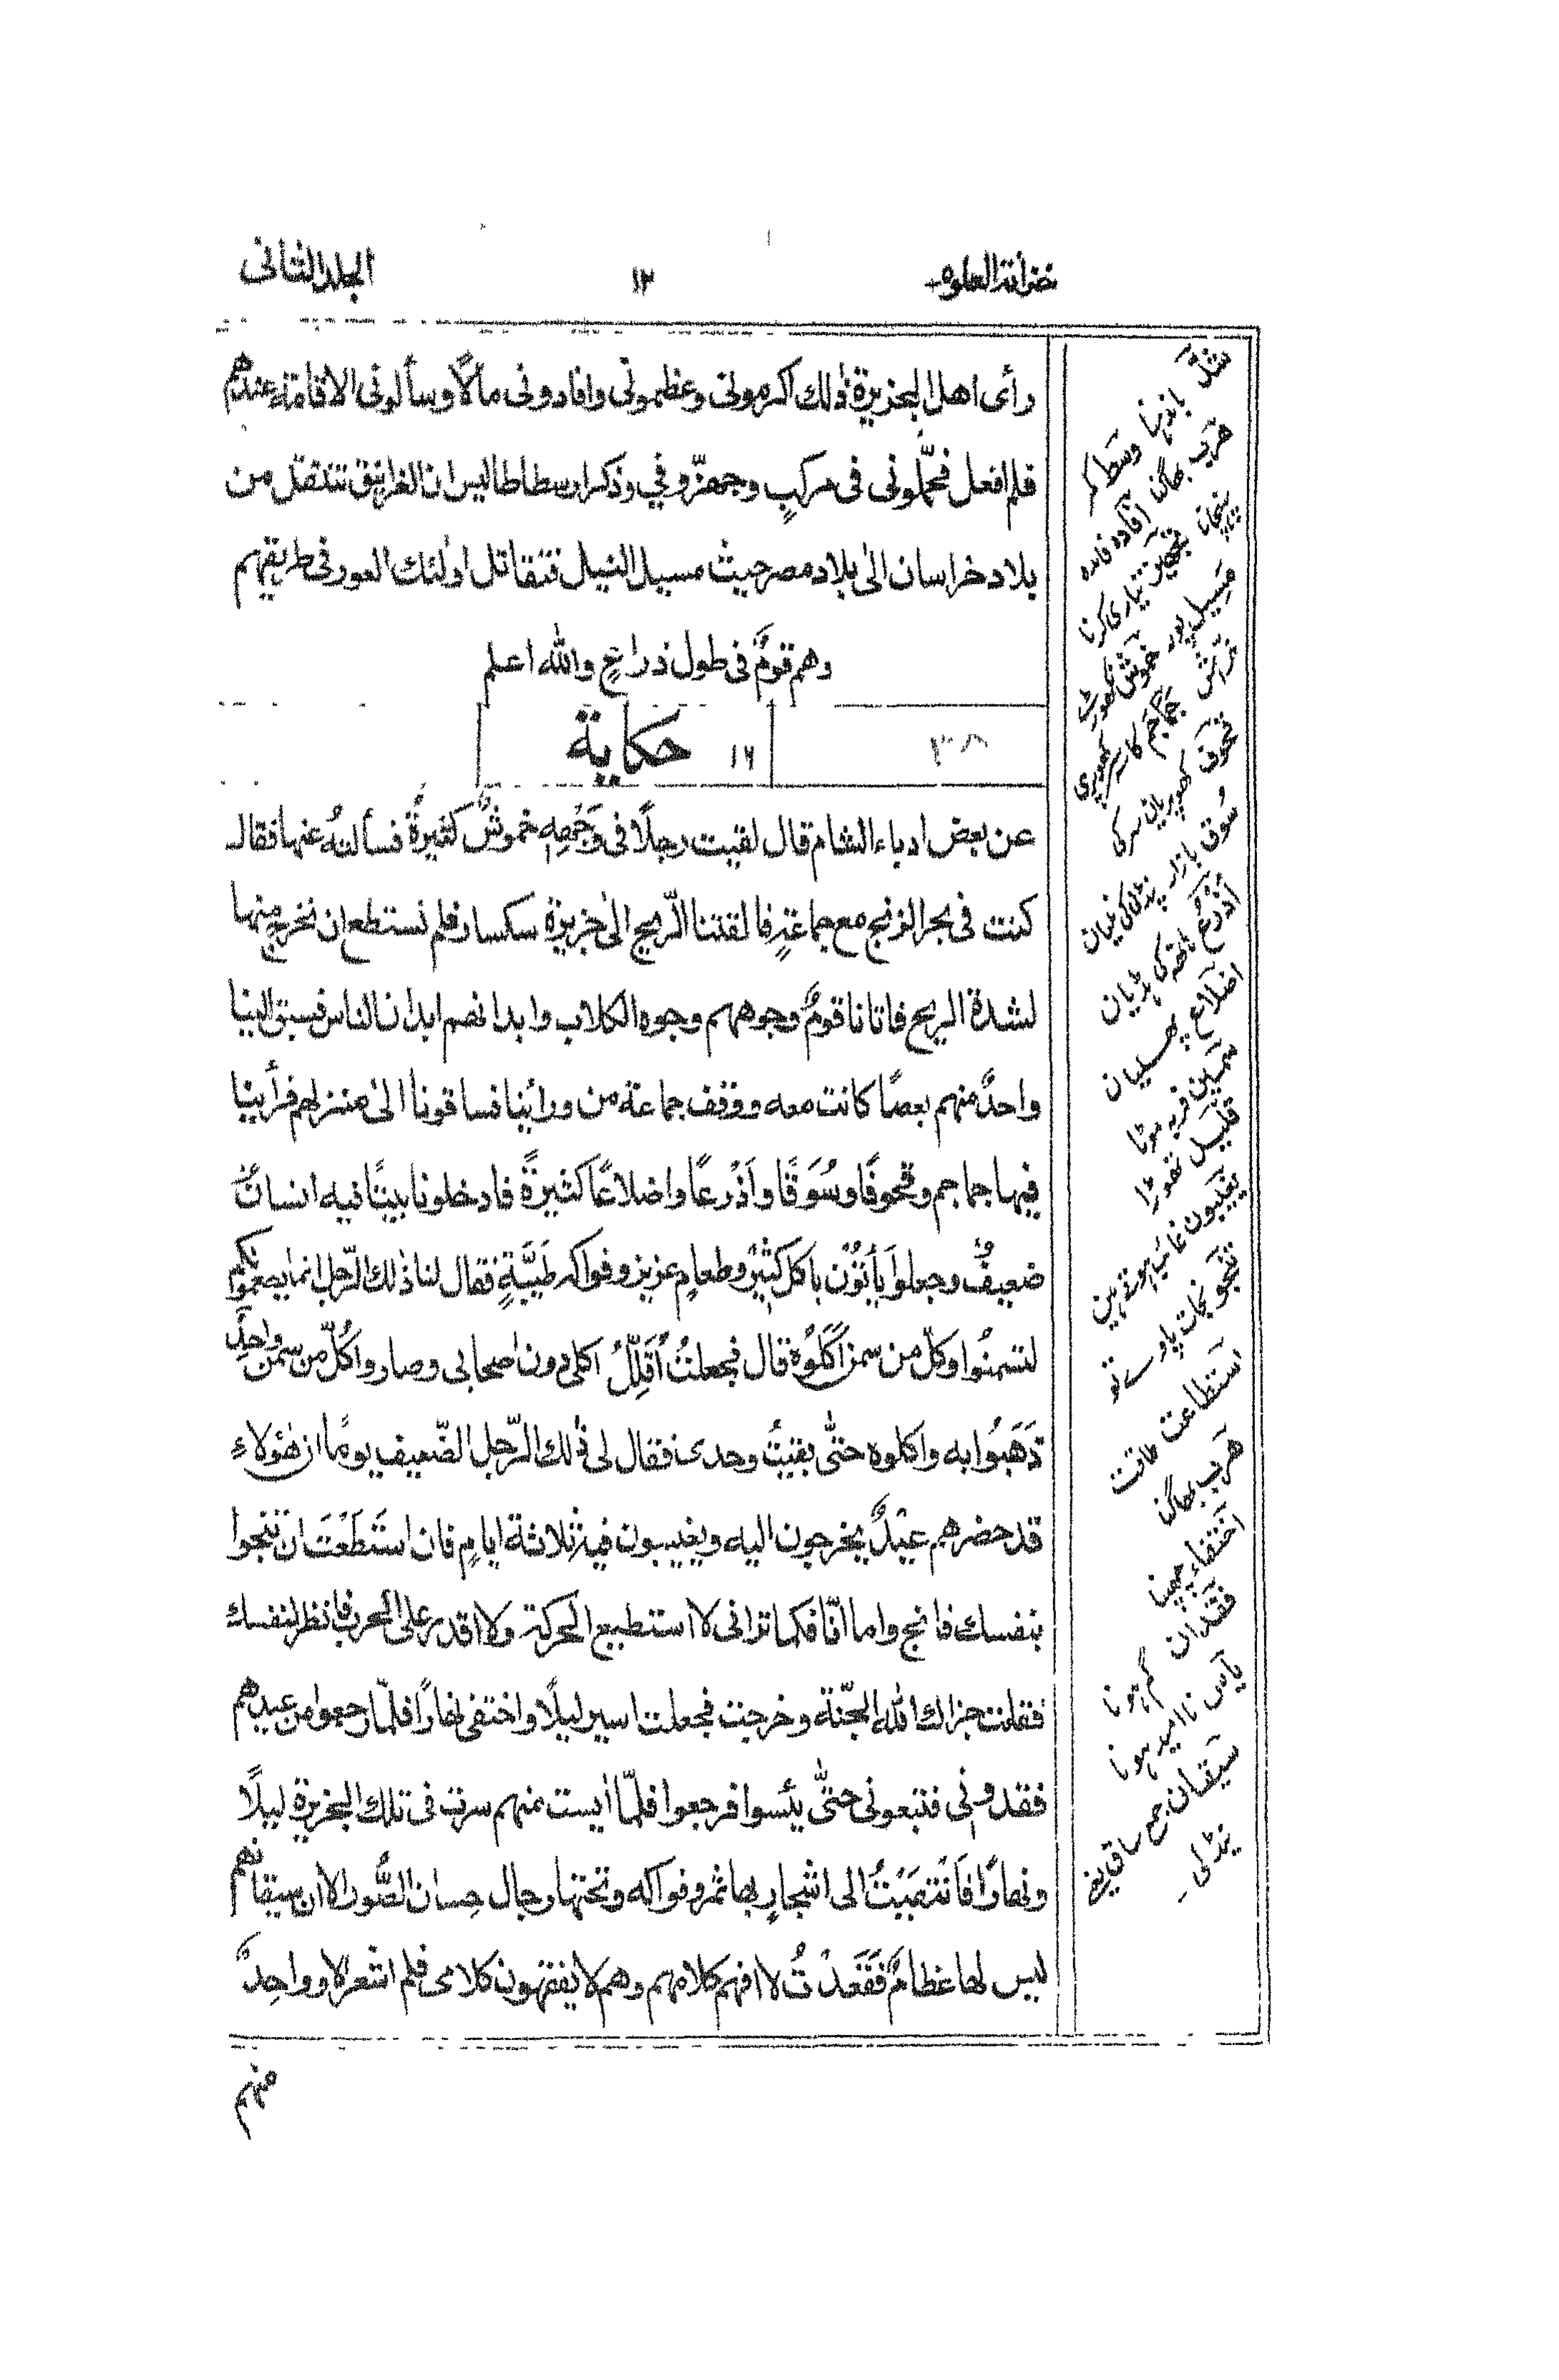 خزانة العلوم
١٢
الجلد الثانى
رأى اهل الجزيرة ذٰلك اكرمونى وعظمونى وافادونى مالًا وسألونى الاقامة عندهم
فلم افعل فحمَّلونى فى مركبٍ وجهزّونى وذكر ارسطاطاليس ان الغرانيق تنتقل من
بلاد خراسان الىٰ بلاد مصر حيث مسيل النيل فتقاتل اولٰئك العور فى طريقهم
وهم قومٌ فى طول ذراعٍ والله اعلم
٣٨
١٦ حكاية
عن بعض ادباء الشام قال لقيت رجلًا فى وَجْهِهٖ خموشٌ كثيرةٌ فسألتهُ عنها فقال
كنت فى بحر الزنج مع جماعةٍ فالقتنا الرّيح الىٰ جزيرة سكسار فلم نستطع ان نخرج منها
لشدة الريح فاتانا قومٌ وجوههم وجوه الكلاب وابدانهم ابدان الناس فسبق الينا
واحدٌ منهم بعصًا كانت معه ووقف جماعة من ورائنا فساقونا الىٰ منزلهم فرأينا
فيها جماجم وقحوفًا وسُوَقًا واَذْرعًا واضلاعًا كثيرةً فادخلونا بيتًا فيه انسانٌ
ضعيفٌ وجعلوا يَأتُوْن باكل كثيرٍ وطعامٍ عزيز وفواكه طَيِّبَةٍ فقال لنا ذٰلك الرّجل انما يطعمونكم
لتسمنُوا وكلّ من سمن اَكَلُوْهُ قال فجعلتُ اُقَلِّلُ اكلى دون اصحابى وصاروا كُلّ من سمن واحدٍ
ذَهَبُوا به واكلوه حتّٰى بقيتُ وحدى فقال لى ذٰلك الرّجل الضّعيف يومًا ان هٰؤلاءِ
قد حضرهم عيْدٌ يخرجون اليه ويغيبون فيه ثلاثة ايامٍ فان استَطَعْتَ ان تنجوا
بنفسك فانج واما انا فكما ترانى لا استطيع الحركة ولا اقدر على الهرب فانظر لنفسك
فقلت جزاك الله الجنّة وخرجت فجعلت اسير ليلًا واختفى نهارًا فلمّا رجعوا من عيدهم
فقدونى فتبعونى حتّٰى يئسوا فرجعوا فلمّا ايست منهم سرت فى تلك الجزيرة ليلًا
ونهارًا فَانْتَهَيْتُ الى اشجارٍ بها ثمر وفواكه وتحتها رجال حِسان الصُّور الا ان سيقانهم
ليس لها عظامٌ فَقَعَدْتُ لا افهم كلامهم وهم لا يفقهون كلامى فلم اشعر الا وواحِدٌ
منهم
هَرَب بھاگنا
افاده فائده
پہنچانا تجهيز تيارى كرنا
مَسِيل
خراش جماجم كاسہ سر
قحوف كھوپڑياں سركى
سُوق
أذرع
اضلاع پسلياں
سَمِين فربہ موٹا
قليل تھوڑا
يغيبون غائب ہوتے ہيں
تنجو نجات پاوے تو
استطاعت طاقت
هَرَب بھاگنا
اختفاء چھپنا
فقدان گم ہونا
ياس نااميد ہونا
سيقان جمع ساق يعنى
پنڈلى ـ